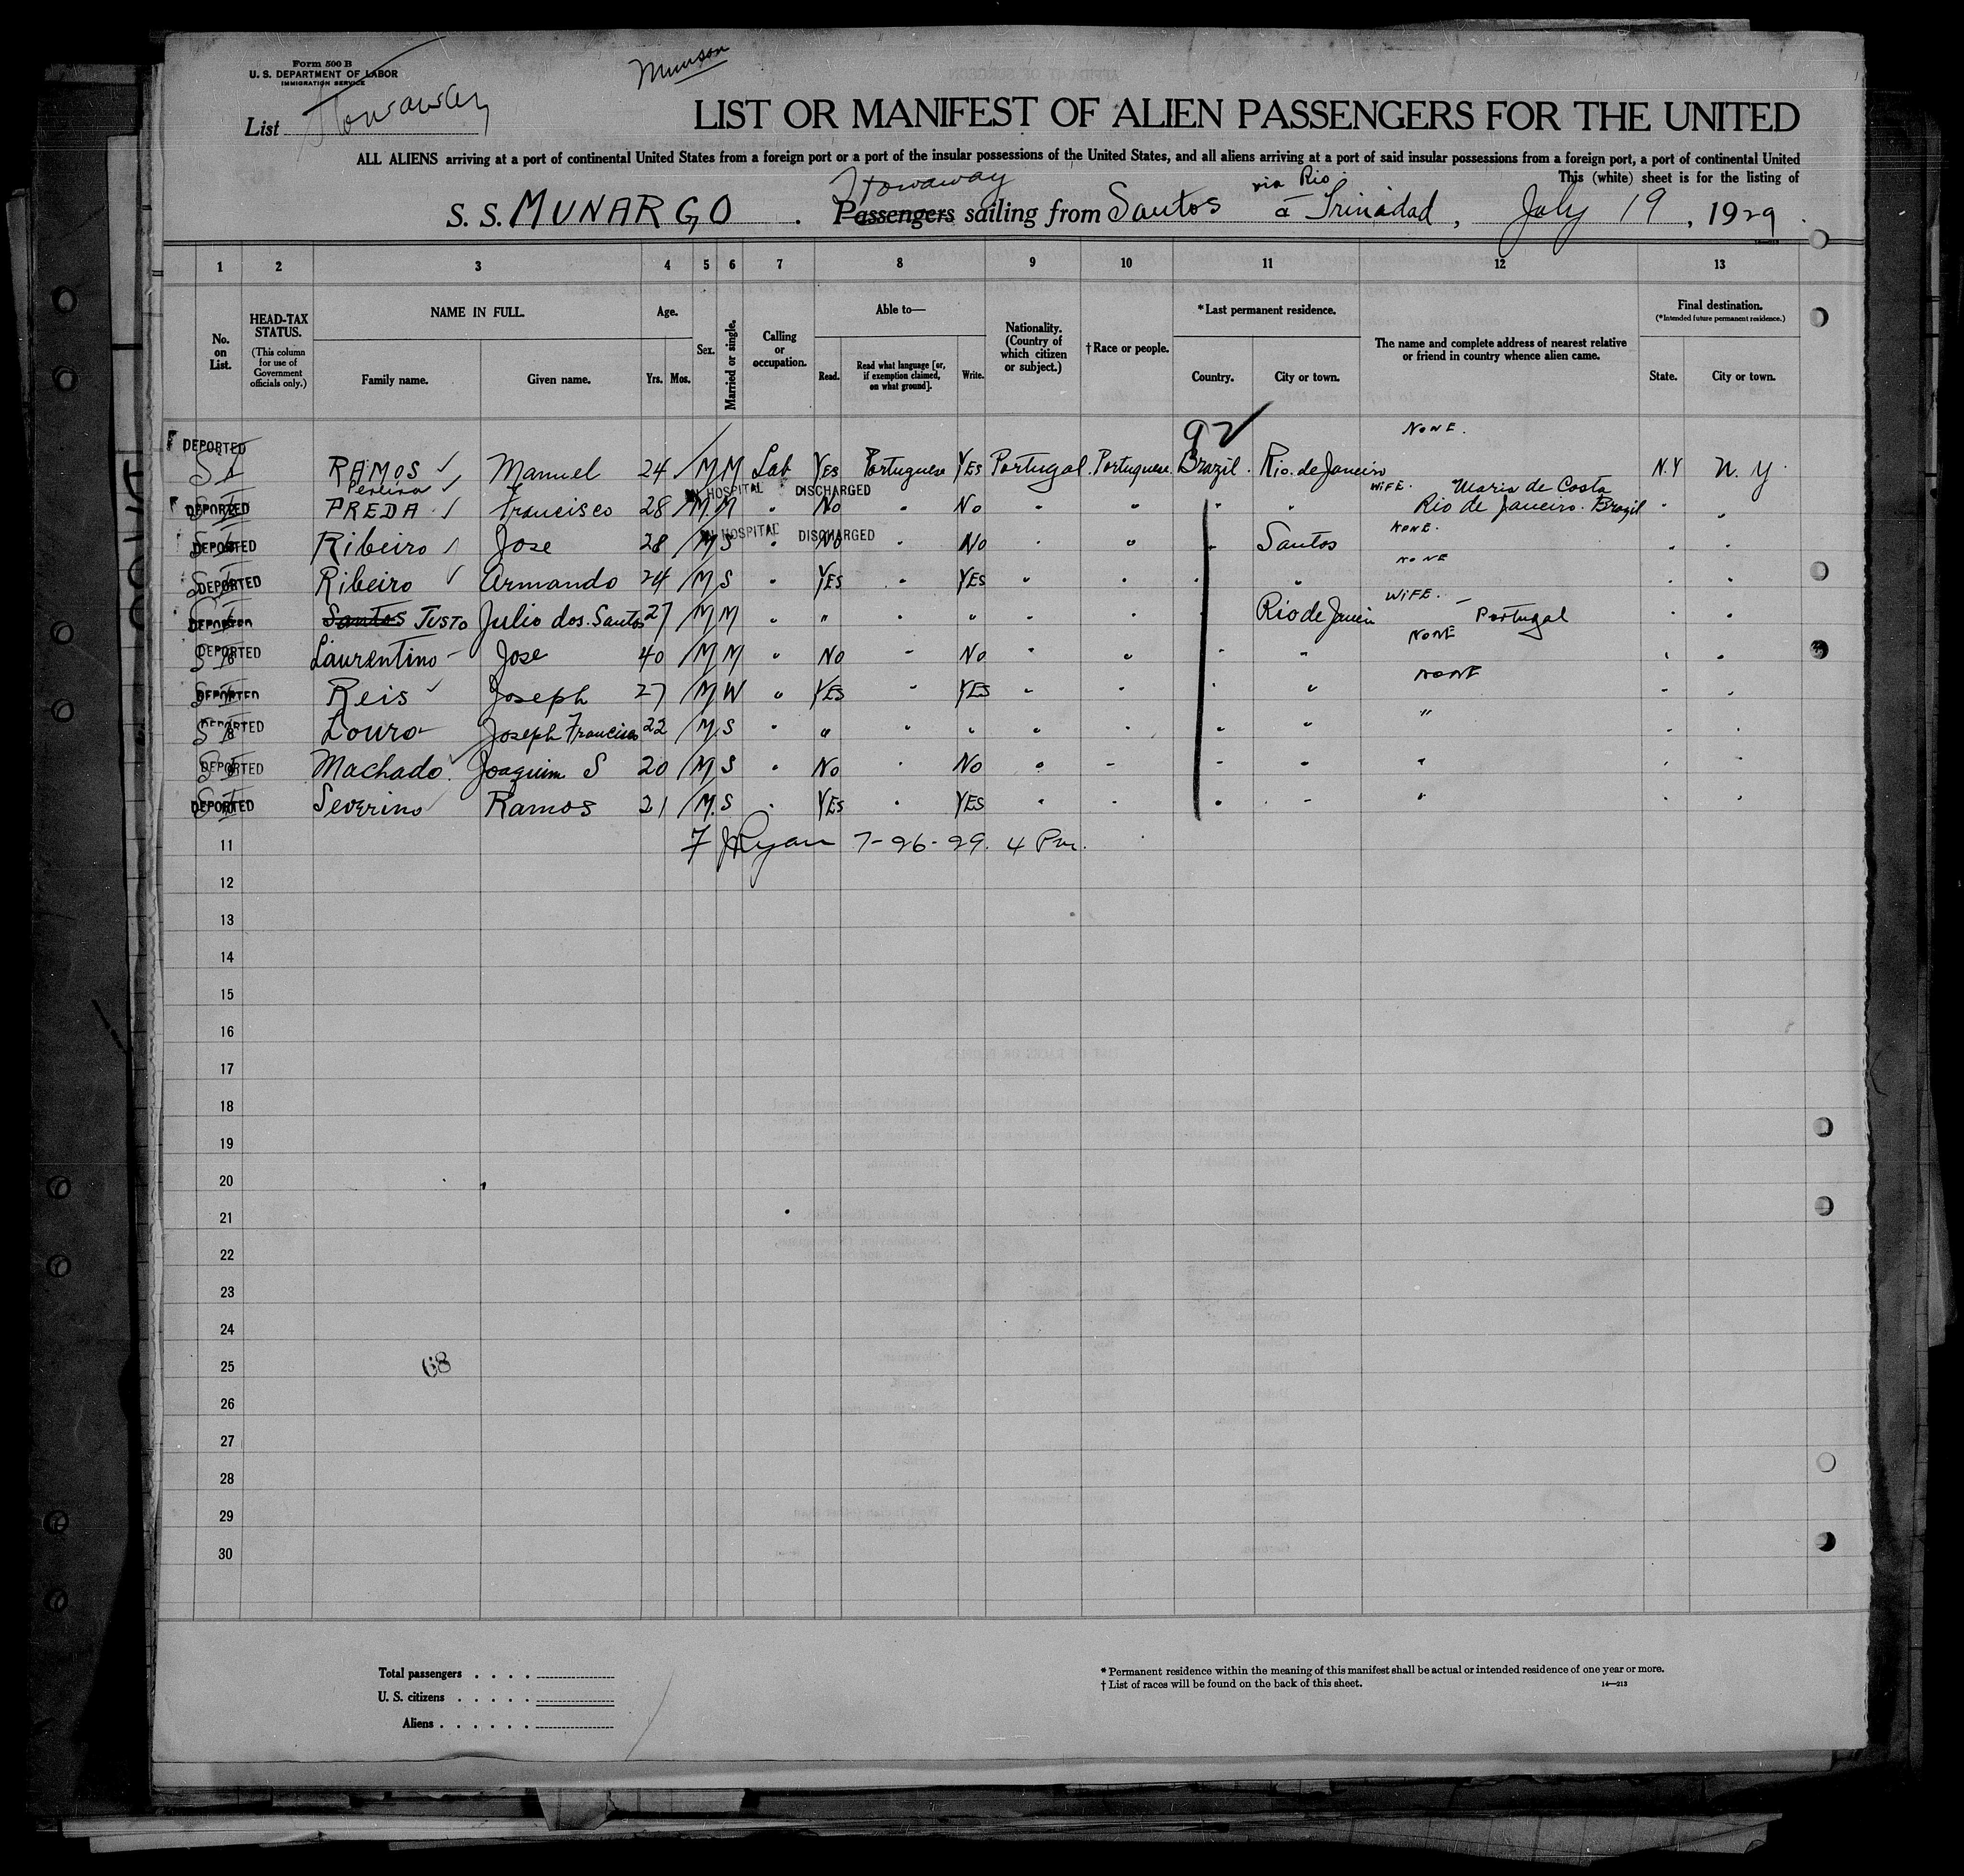 Form 500 B
U. S. DEPARTMENT OF LABOR
IMMIGRATION SERVICE
Munson
List Stowaway
LIST OR MANIFEST OF ALIEN PASSENGERS FOR THE UNITED
ALL ALIENS arriving at a port of continental United States from a foreign port or a port of the insular possessions of the United States, and all aliens arriving at a port of said insular possessions from a foreign port, a port of continental United
This (white) sheet is for the listing of
Stowaway via Rio
S. S. MUNARGO . Passengers sailing from Santos a Trinidad , July 19 , 1929 .
1 2 3 4 5 6 7 8 9 10 11 12 13
No. on List.
HEAD-TAX STATUS.
(This column for use of Government officials only.)
NAME IN FULL.
Family name. Given name.
Age.
Yrs. Mos.
Sex.
Married or single.
Calling or occupation.
Able to—
Read. Read what language [or, if exemption claimed, on what ground]. Write.
Nationality. (Country of which citizen or subject.)
† Race or people.
* Last permanent residence.
Country. City or town.
The name and complete address of nearest relative or friend in country whence alien came.
Final destination.
(*Intended future permanent residence.)
State. City or town.
92
NONE.
DEPORTED RAMOS Manuel 24 M M Lab YES Portuguese YES Portugal Portuguese Brazil Rio. de Janeiro N.Y N.Y.
Pereira IN HOSPITAL DISCHARGED WIFE. Maria de Costa
DEPORTED PREDA Francisco 28 M M " No " No " " " " Rio de Janeiro. Brazil " "
IN HOSPITAL DISCHARGED NONE.
DEPORTED Ribeiro Jose 28 M S " No " No " " " Santos " "
NONE
DEPORTED Ribeiro Armando 24 M S " YES " YES " " " " " "
WIFE. —
DEPORTED Santos JUSTO Julio dos. Santos 27 M M " " " " " " " Rio de Janeiro Portugal " "
NONE
DEPORTED Laurentino Jose 40 M M " No " No " " " " " "
NONE
DEPORTED Reis Joseph 27 M W " YES " YES " " " " " "
DEPORTED Louro Joseph Francisco 22 M. S " " " " " " " " " " "
DEPORTED Machado Joaquim S 20 M S " No " No " " " " " " "
DEPORTED Severino Ramos 21 M. S " YES " YES " " " " " " "
11 Ryan 7-26-29. 4 Pm.
12
13
14
15
16
17
18
19
20
21
22
23
24
25
68
26
27
28
29
30
Total passengers . . . .
U. S. citizens . . . . .
Aliens . . . . . .
* Permanent residence within the meaning of this manifest shall be actual or intended residence of one year or more.
† List of races will be found on the back of this sheet. 14—213